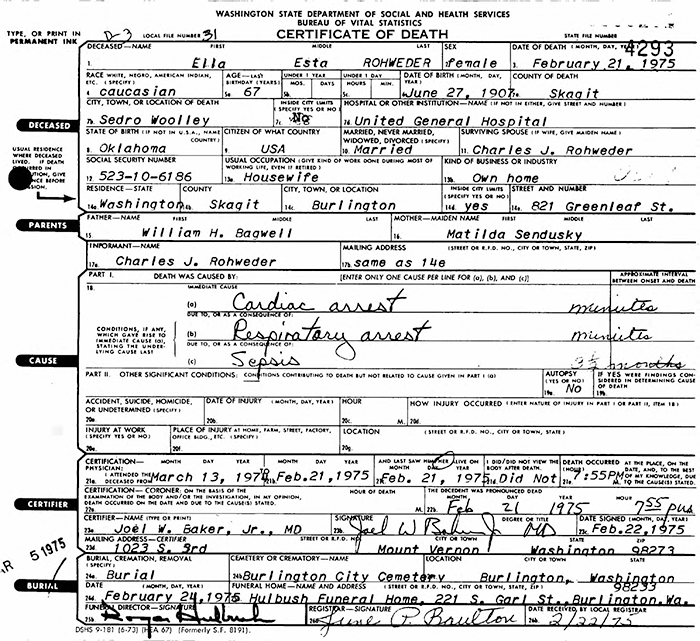 WASHINGTON STATE DEPARTMENT OF SOCIAL AND HEALTH SERVICES
BUREAU OF VITAL STATISTICS
CERTIFICATE OF DEATH
TYPE, OR PRINT IN PERMANENT INK
D-3 LOCAL FILE NUMBER 31 STATE FILE NUMBER
4293
DECEASED—NAME FIRST MIDDLE LAST SEX DATE OF DEATH (MONTH, DAY, YEAR)
1. Ella Esta ROHWEDER 2. female 3. February 21, 1975
RACE WHITE, NEGRO, AMERICAN INDIAN, ETC. (SPECIFY) AGE—LAST BIRTHDAY (YEARS) UNDER 1 YEAR MOS. DAYS UNDER 1 DAY HOURS MIN. DATE OF BIRTH (MONTH, DAY, YEAR) COUNTY OF DEATH
4. caucasian 5a. 67 5b. 5c. 6. June 27, 1907 7a. Skagit
CITY, TOWN, OR LOCATION OF DEATH INSIDE CITY LIMITS (SPECIFY YES OR NO) HOSPITAL OR OTHER INSTITUTION—NAME (IF NOT IN EITHER, GIVE STREET AND NUMBER)
7b. Sedro Woolley 7c. No 7d. United General Hospital
DECEASED
STATE OF BIRTH (IF NOT IN U.S.A., NAME COUNTRY) CITIZEN OF WHAT COUNTRY MARRIED, NEVER MARRIED, WIDOWED, DIVORCED (SPECIFY) SURVIVING SPOUSE (IF WIFE, GIVE MAIDEN NAME)
8. Oklahoma 9. USA 10. Married 11. Charles J. Rohweder
USUAL RESIDENCE WHERE DECEASED LIVED. IF DEATH
SOCIAL SECURITY NUMBER USUAL OCCUPATION (GIVE KIND OF WORK DONE DURING MOST OF WORKING LIFE, EVEN IF RETIRED) KIND OF BUSINESS OR INDUSTRY
12. 523-10-6186 13a. Housewife 13b. Own home
RESIDENCE—STATE COUNTY CITY, TOWN, OR LOCATION INSIDE CITY LIMITS (SPECIFY YES OR NO) STREET AND NUMBER
14a. Washington 14b. Skagit 14c. Burlington 14d. yes 14e. 821 Greenleaf St.
PARENTS
FATHER—NAME FIRST MIDDLE LAST MOTHER—MAIDEN NAME FIRST MIDDLE LAST
15. William H. Bagwell 16. Matilda Sendusky
INFORMANT—NAME MAILING ADDRESS (STREET OR R.F.D. NO., CITY OR TOWN, STATE, ZIP)
17a. Charles J. Rohweder 17b. same as 14e
PART I. DEATH WAS CAUSED BY: [ENTER ONLY ONE CAUSE PER LINE FOR (a), (b), AND (c)] APPROXIMATE INTERVAL BETWEEN ONSET AND DEATH
18. IMMEDIATE CAUSE
(a) Cardiac arrest minutes
DUE TO, OR AS A CONSEQUENCE OF:
CONDITIONS, IF ANY, WHICH GAVE RISE TO IMMEDIATE CAUSE (a), STATING THE UNDERLYING CAUSE LAST
(b) Respiratory arrest minutes
DUE TO, OR AS A CONSEQUENCE OF:
(c) Sepsis 3½ months
CAUSE
PART II. OTHER SIGNIFICANT CONDITIONS: CONDITIONS CONTRIBUTING TO DEATH BUT NOT RELATED TO CAUSE GIVEN IN PART I (a) AUTOPSY (YES OR NO) IF YES WERE FINDINGS CONSIDERED IN DETERMINING CAUSE OF DEATH
19a. No 19b.
ACCIDENT, SUICIDE, HOMICIDE, OR UNDETERMINED (SPECIFY) DATE OF INJURY (MONTH, DAY, YEAR) HOUR HOW INJURY OCCURRED (ENTER NATURE OF INJURY IN PART I OR PART II, ITEM 18)
20a. 20b. 20c. M. 20d.
INJURY AT WORK (SPECIFY YES OR NO) PLACE OF INJURY AT HOME, FARM, STREET, FACTORY, OFFICE BLDG., ETC. (SPECIFY) LOCATION (STREET OR R.F.D. NO., CITY OR TOWN, STATE)
20e. 20f. 20g.
CERTIFICATION— PHYSICIAN: MONTH DAY YEAR MONTH DAY YEAR AND LAST SAW HIM/HER ALIVE ON MONTH DAY YEAR I DID/DID NOT VIEW THE BODY AFTER DEATH. DEATH OCCURRED AT THE PLACE, ON THE DATE, AND, TO THE BEST OF MY KNOWLEDGE, DUE TO THE CAUSE(S) STATED.
21a. I ATTENDED THE DECEASED FROM March 13, 21b. Feb.21,1975 21c. Feb. 21, 1975 21d. Did Not 21e. 7:55PM
CERTIFICATION—CORONER: ON THE BASIS OF THE EXAMINATION OF THE BODY AND/OR THE INVESTIGATION, IN MY OPINION, DEATH OCCURRED ON THE DATE AND DUE TO THE CAUSE(S) STATED. HOUR OF DEATH THE DECEDENT WAS PRONOUNCED DEAD MONTH DAY YEAR HOUR
22a. M. 22b. Feb 21 1975 7:55 pm
CERTIFIER
CERTIFIER—NAME (TYPE OR PRINT) SIGNATURE DEGREE OR TITLE DATE SIGNED (MONTH, DAY, YEAR)
23a. Joel W. Baker, Jr., MD 23b. Joel W Baker Jr MD 23c. Feb.22,1975
MAILING ADDRESS—CERTIFIER STREET OR R.F.D. NO. CITY OR TOWN STATE ZIP
23d. 1023 S. 3rd Mount Vernon Washington 98273
R 5 1975
BURIAL, CREMATION, REMOVAL (SPECIFY) CEMETERY OR CREMATORY—NAME LOCATION CITY OR TOWN STATE
24a. Burial 24b. Burlington City Cemetery Burlington, Washington
98233
BURIAL
DATE (MONTH, DAY, YEAR) FUNERAL HOME—NAME AND ADDRESS (STREET OR R.F.D. NO., CITY OR TOWN, STATE, ZIP)
24d. February 24,1975 Hulbush Funeral Home, 221 S. Garl St., Burlington,Wa.
FUNERAL DIRECTOR—SIGNATURE REGISTRAR—SIGNATURE DATE RECEIVED BY LOCAL REGISTRAR
25b. Roger Hulbush 26a. June P. Boulton 26b. 2/22/75
DSHS 9-181 (6-73) (HEA 67) (Formerly S.F. 8191).